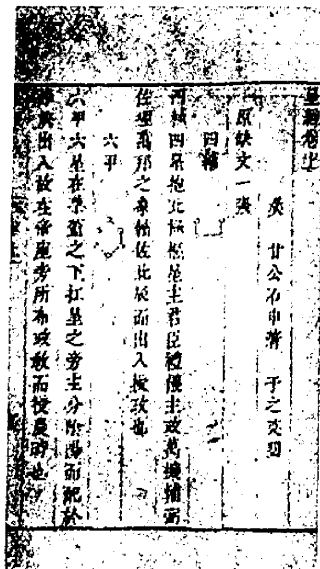 星經卷上
漢 甘公石申著
原缺文一張
四輔
四輔四星抱北極樞星主君臣禮儀主政萬機輔弼
佐理萬邦之象輔佐北辰而出入授政也
六甲
六甲六星在華蓋之下扛星之旁主分陰陽而配於
出入故在帝座旁所布政教而授農時也